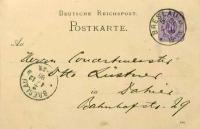 DEUTSCHE REICHSPOST.
POSTKARTE.
BRESLAU
An
Herrn Concertmeister
Otto Lüstner
in
Bahnhofstr. 29
BRESLAU